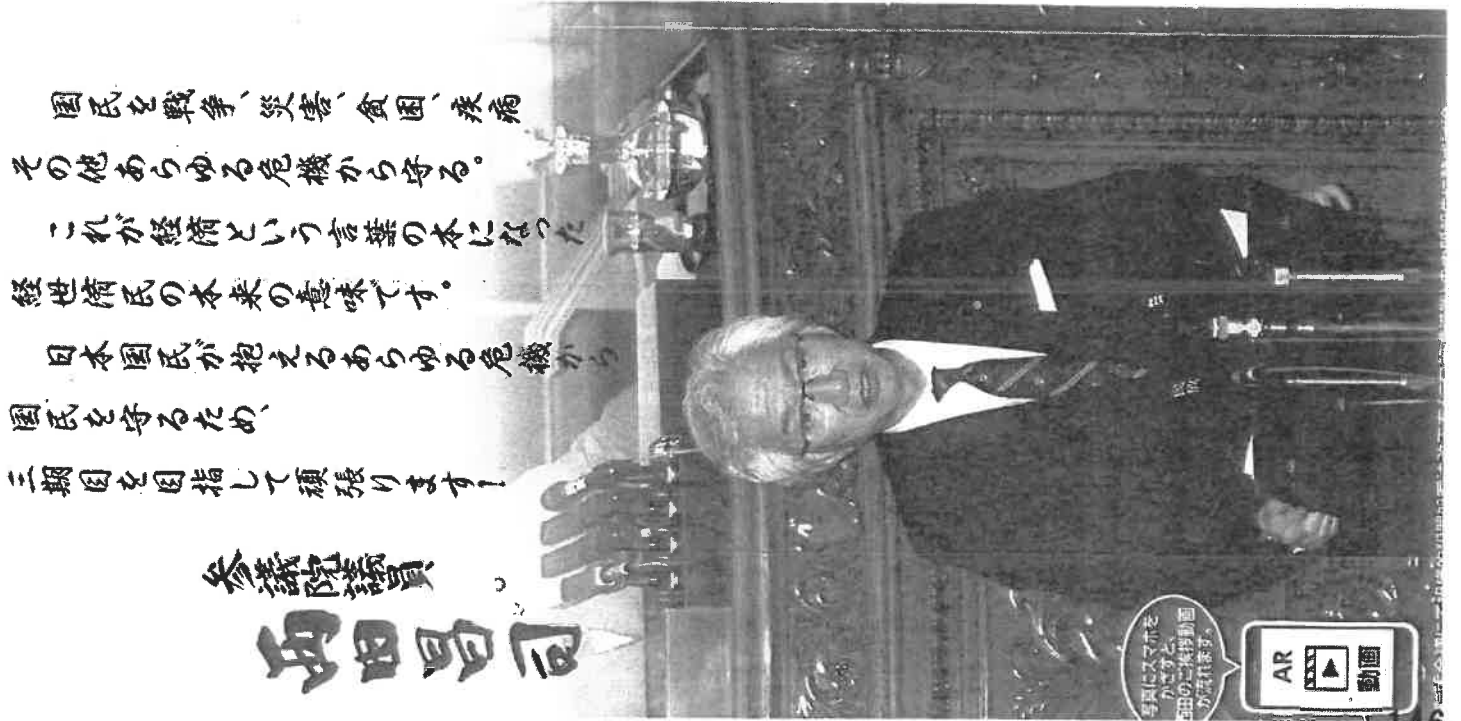 国民を戦争、災害、貧困、疾病
その他あらゆる危機から守る。
これが経済という言葉の本になった
経世済民の本来の意味です。
日本国民が抱えるあらゆる危機から
国民を守るため、
三期目を目指して頑張ります!
参議院議員
西田昌司
写真にスマホを
かざすと、
西田のご挨拶動画
が流れます。
AR
動画